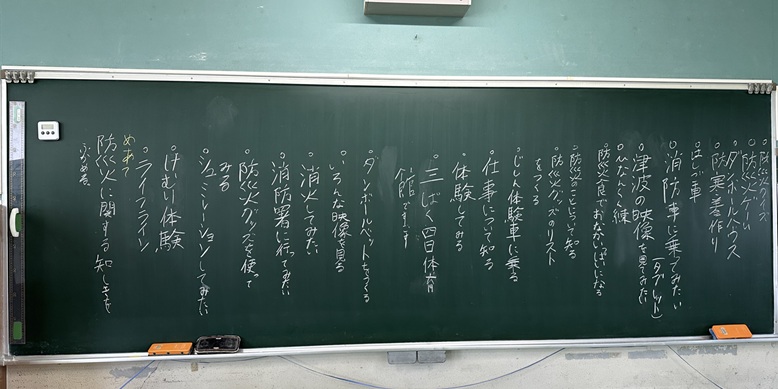 ○防災クイズ
○防災ゲーム
○ダンボールハウス
○防寒着作り
○はしご車
○消防車に乗ってみたい
○津波の映像を見てみたい
(タブレット)
○ひなんくん練
○防災食でおなかいっぱいになる
○防災のことについて知る
○防災グッズのリスト
をつくる
○じしん体験車に乗る
○仕事について知る
○体験してみる
○三ぱく四日体育
館で
○ダンボールベットをつくる
○いろんな映像を見る
○消火してみたい
○消防署に行ってみたい
○防災グッズを使って
みる
○シュミレーションしてみたい
○けむり体験
○ライフライン
めあて
防災に関する知しきを
ふかめる